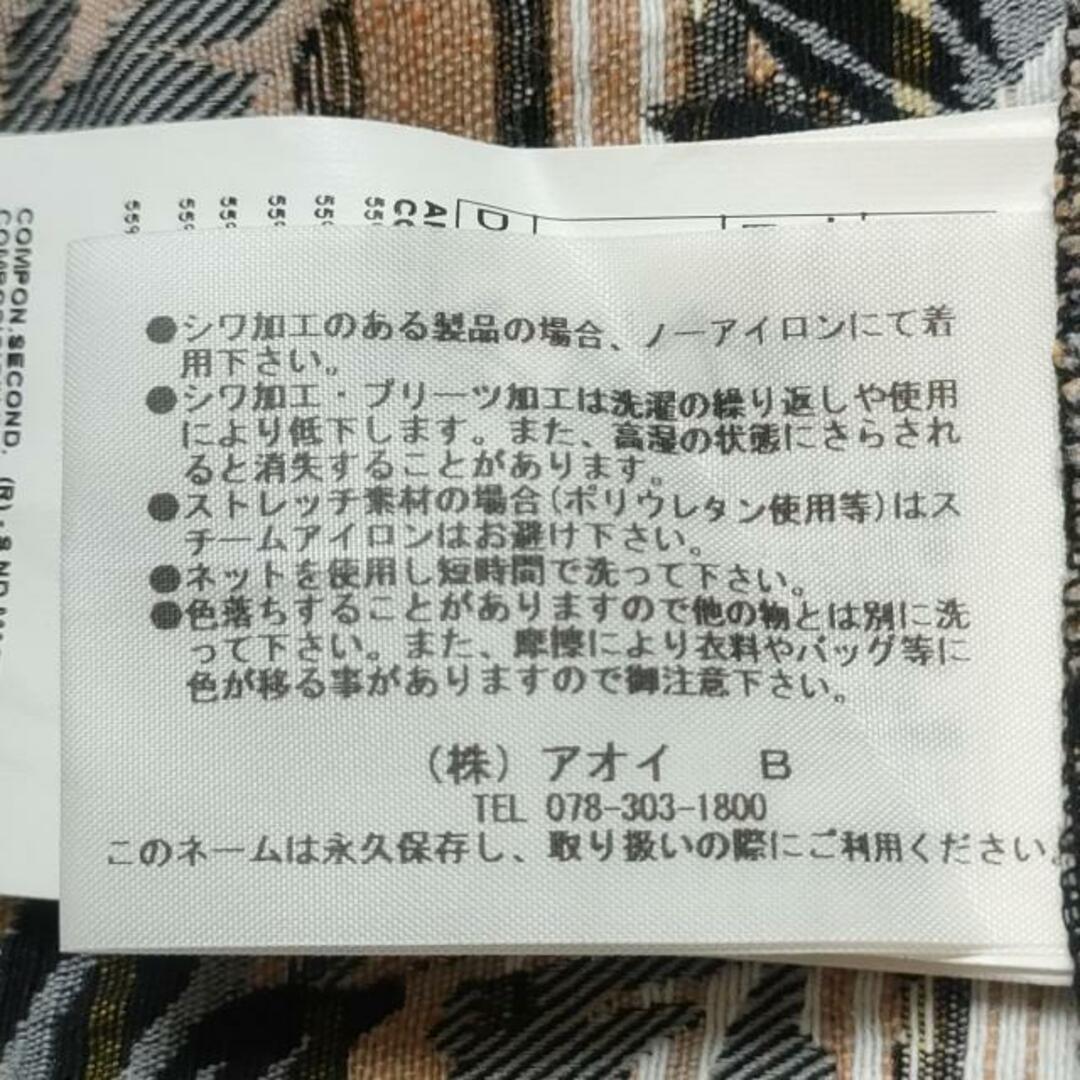 ●シワ加工のある製品の場合、ノーアイロンにて着
用下さい。
●シワ加工・プリーツ加工は洗濯の繰り返しや使用
により低下します。また、高湿の状態にさらされ
ると消失することがあります。
●ストレッチ素材の場合(ポリウレタン使用等)はス
チームアイロンはお避け下さい。
●ネットを使用し短時間で洗って下さい。
●色落ちすることがありますので他の物とは別に洗
って下さい。また、摩擦により衣料やバッグ等に
色が移る事がありますので御注意下さい。
(株) アオイ B
TEL 078-303-1800
このネームは永久保存し、取り扱いの際にご利用ください。
COMPON.SECOND.